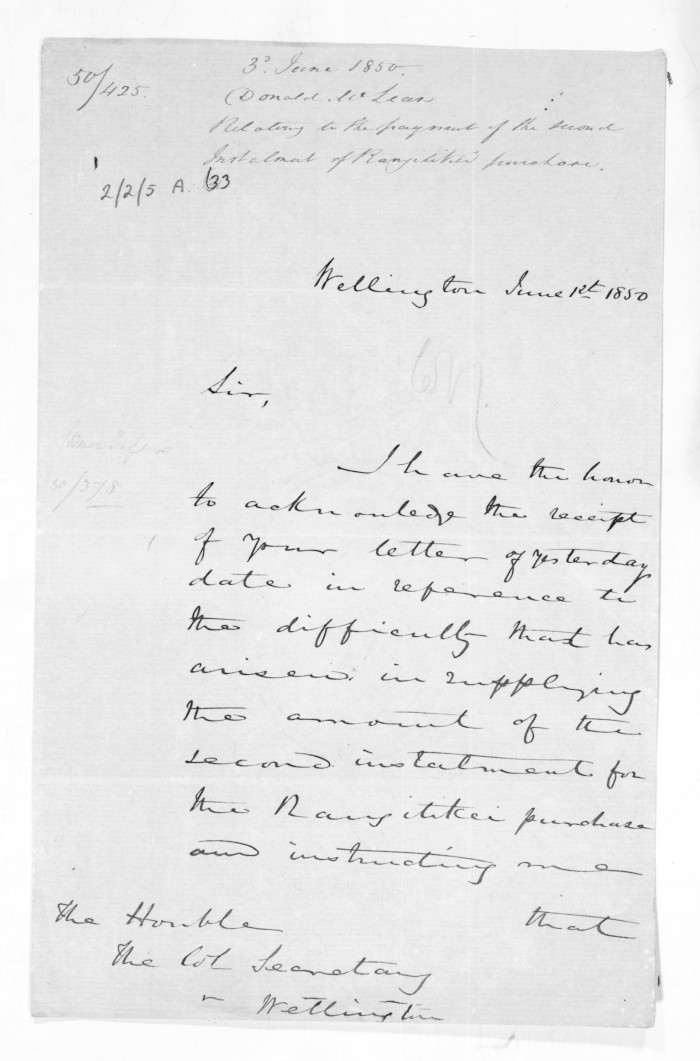 50/425.
3d. June 1850.
Donald McLean
Relating to the payment of the second
Instalment of Rangitikei purchase.
2/2/5 A. 33
Wellington June 1st 1850
Sir,
I have the honor
to acknowledge the receipt
of your letter of yesterdays
date in reference to
the difficulty that has
arisen in supplying
the amount of the
second instalment for
the Rangitikei purchase
and instructing me
that
The Honble
The Col Secretary
Wellington